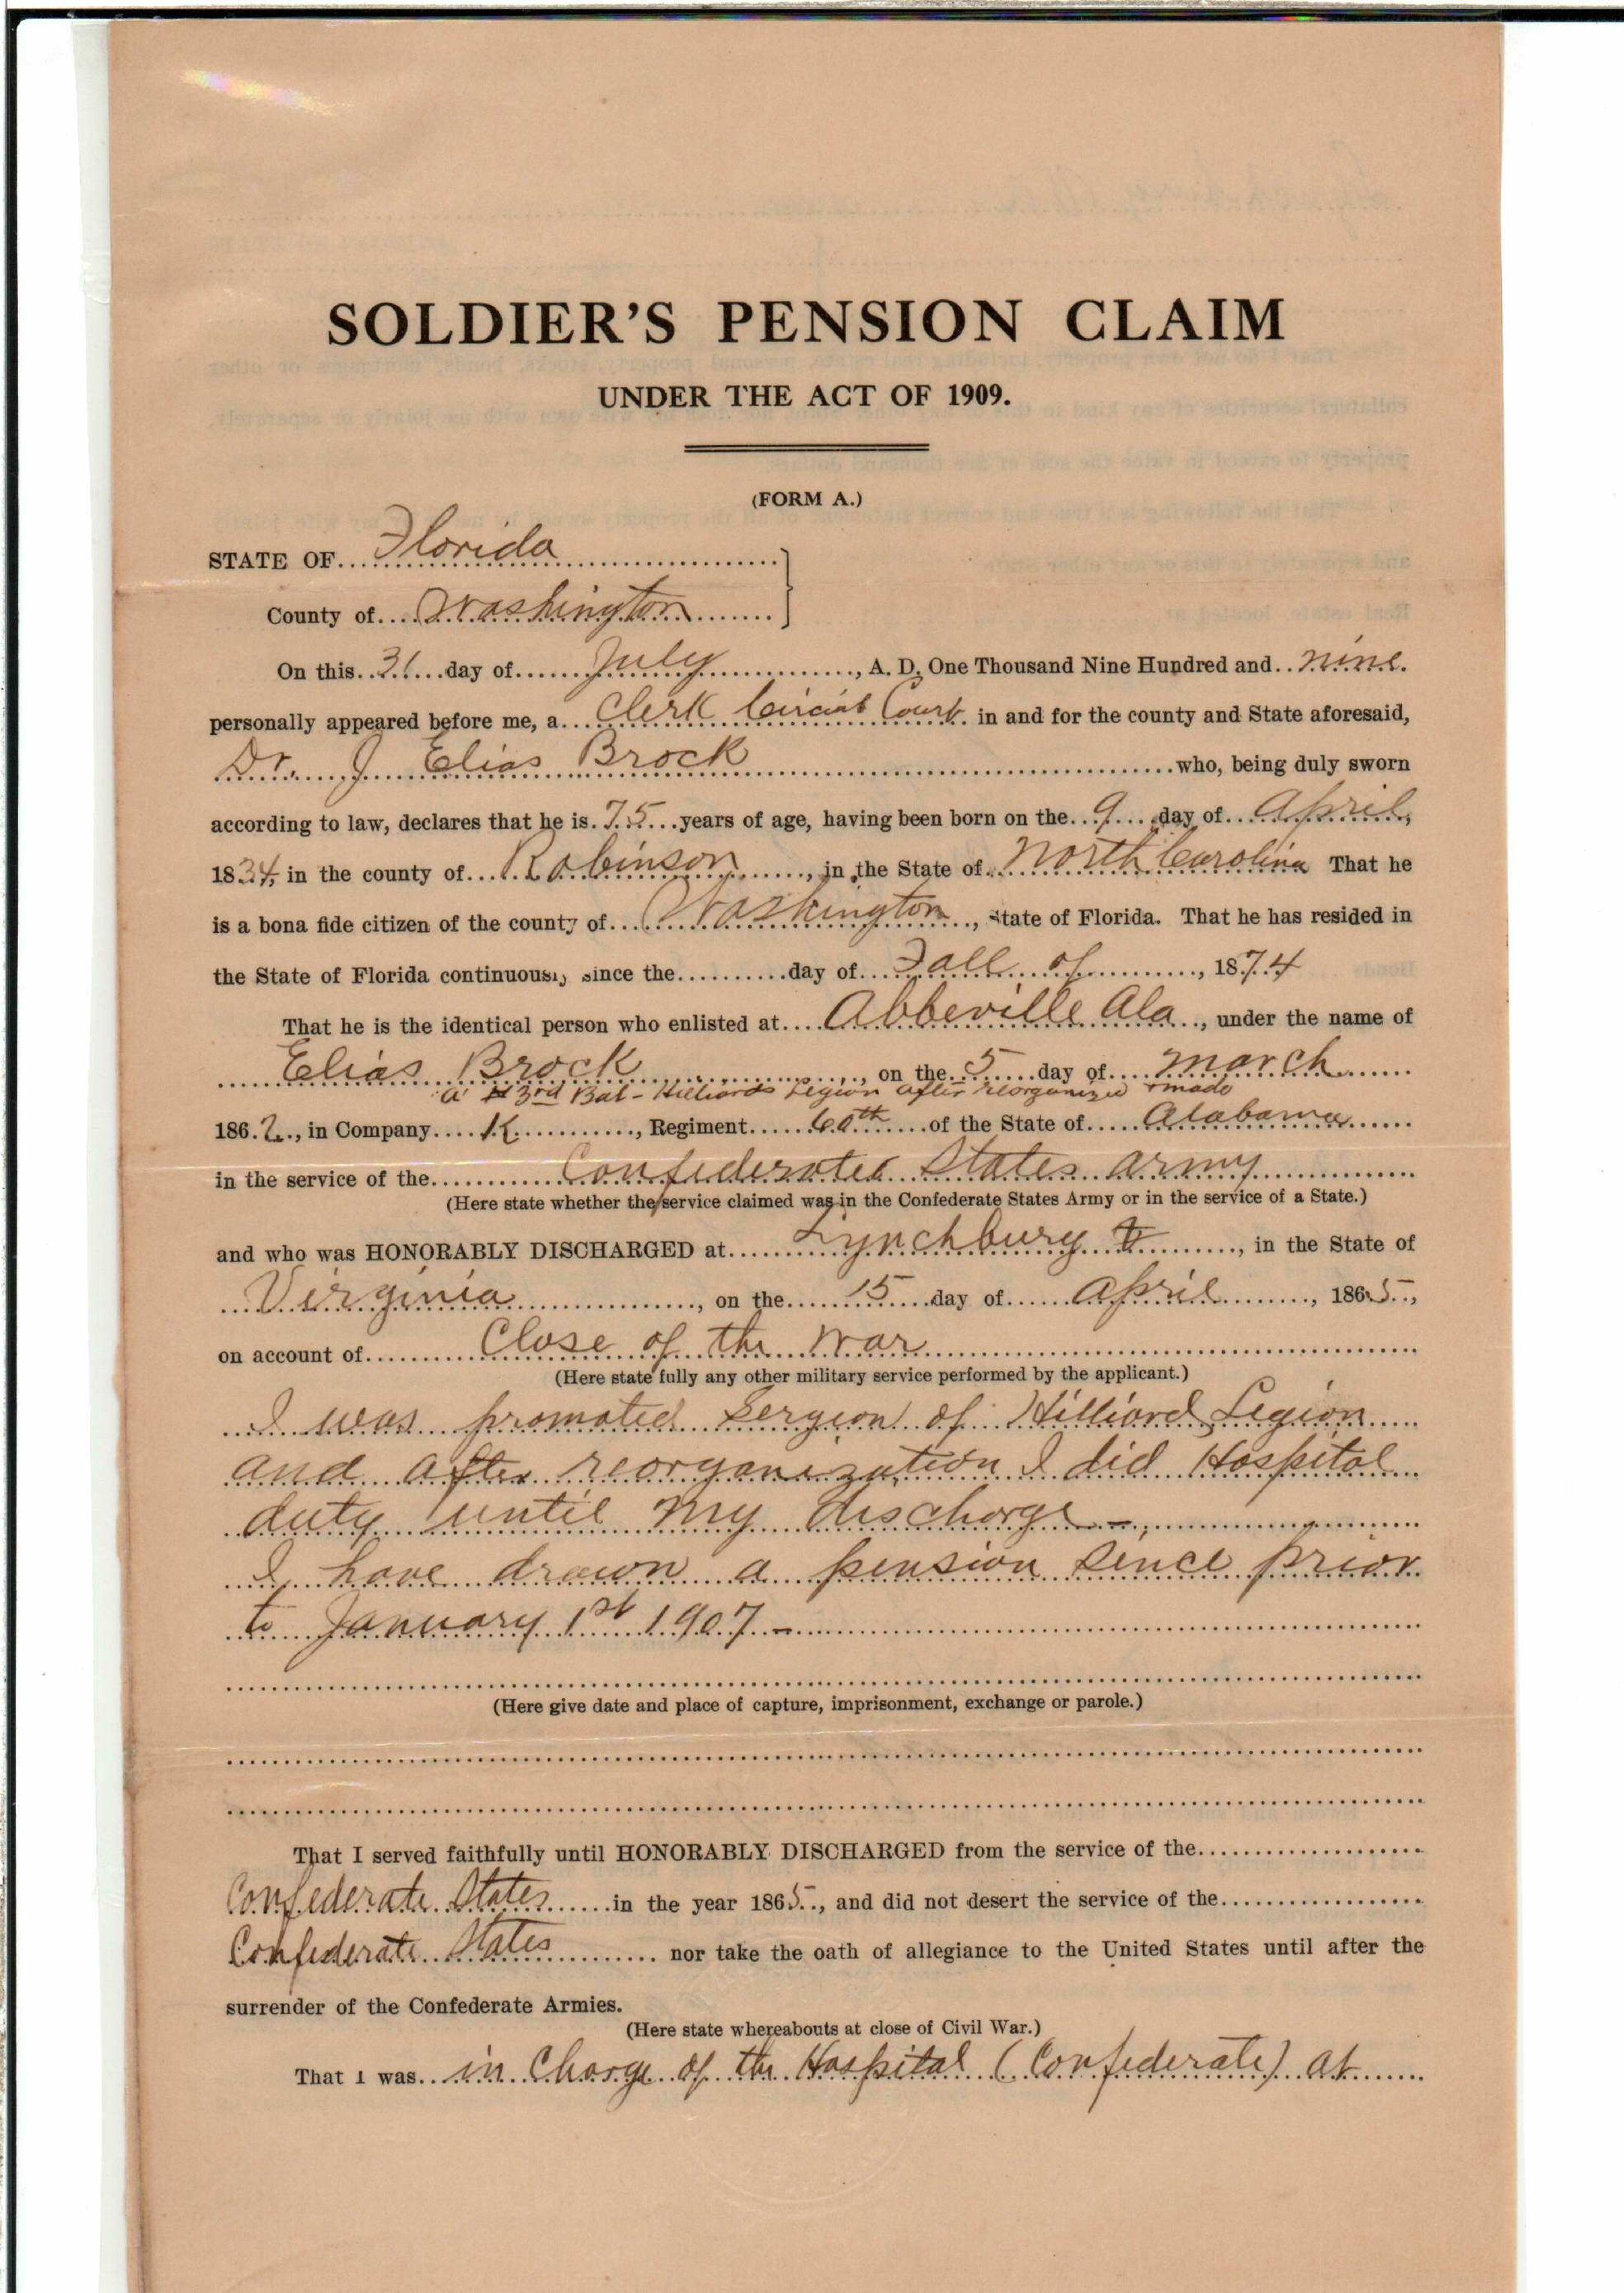 SOLDIER'S PENSION CLAIM
UNDER THE ACT OF 1909.
(FORM A.)
STATE OF Florida
County of Washington
On this 31 day of July, A. D. One Thousand Nine Hundred and nine
personally appeared before me, a Clerk Circuit Court in and for the county and State aforesaid,
Dr. J Elias Brock who, being duly sworn
according to law, declares that he is 75 years of age, having been born on the 9 day of April,
1834, in the county of Robinson, in the State of North Carolina That he
is a bona fide citizen of the county of Washington, State of Florida. That he has resided in
the State of Florida continuously since the day of Fall of, 1874
That he is the identical person who enlisted at Abbeville Ala, under the name of
Elias Brock, on the 5 day of March
"A" 3rd Bat - Hilliards Legion after reorganized + made
1862, in Company K, Regiment 60th of the State of Alabama
in the service of the Confederated States Army
(Here state whether the service claimed was in the Confederate States Army or in the service of a State.)
and who was HONORABLY DISCHARGED at Lynchburg, in the State of
Virginia, on the 15 day of April, 1865,
on account of Close of the War
(Here state fully any other military service performed by the applicant.)
I was promoted Sergion of Hilliard Legion
and after reorganization I did Hospital
duty until my discharge -
I have drawn a pension since prior
to January 1st 1907 -
(Here give date and place of capture, imprisonment, exchange or parole.)
That I served faithfully until HONORABLY DISCHARGED from the service of the
Confederate States in the year 1865, and did not desert the service of the
Confederate States nor take the oath of allegiance to the United States until after the
surrender of the Confederate Armies.
(Here state whereabouts at close of Civil War.)
That I was in Charge of the Hospital (Confederate) at